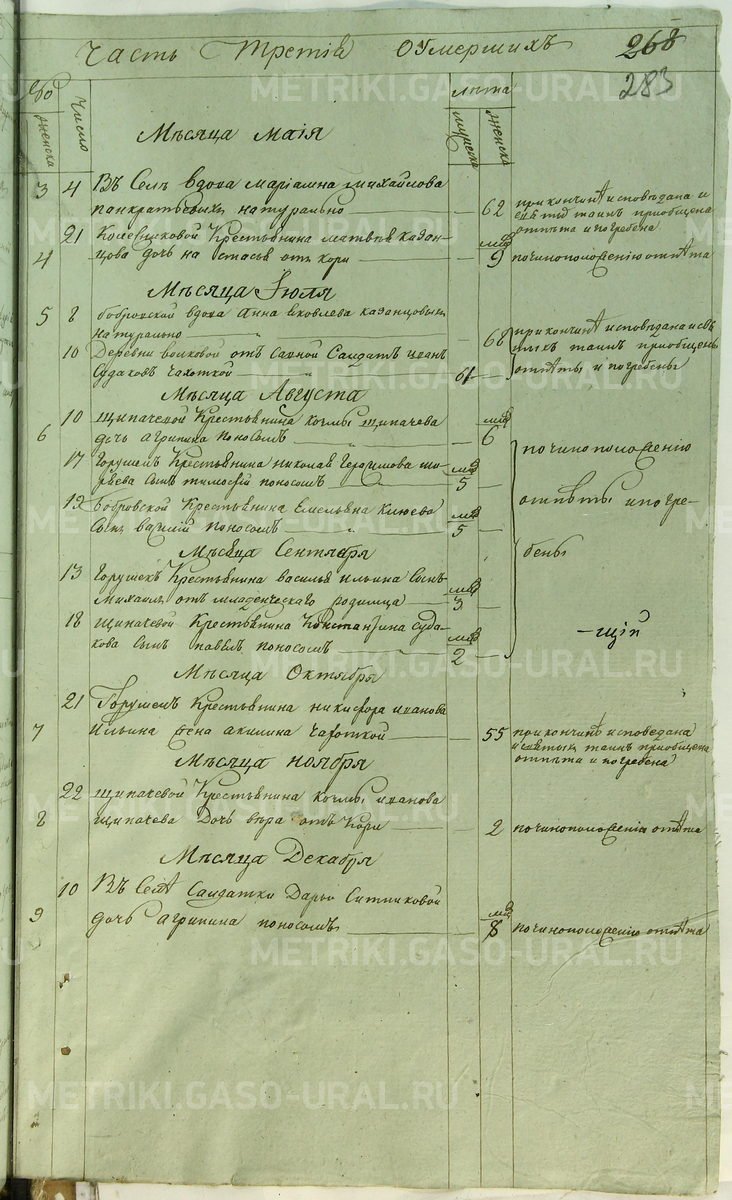 Часть Третія Оумершихъ 268
283
Число
женска
лѣта
мужеска
женска
Мѣсяца Маія
3 4 Въ Селѣ вдова Маріамна Михайлова 62 при кончинѣ исповѣдана и
панкратьевыхъ натурально святыхъ таинъ приобщена
отпѣта и погребена
21 Колевниковой Крестьянина Матвѣя Казан-
4 цова дочь настасья отъ кори 9 по чиноположению отпѣта
Мѣсяца Іюля
5 8 бобровской вдова Анна Яковлева казанцовыхъ
натурально 66 при кончинѣ исповѣдана и свя-
10 Деревни волковой отъ Салдатъ иванъ тыхъ таинъ приобщены
Судаковъ чахоткой 61 отпѣты и погребены
Мѣсяца Августа
10 щипачевой Крестьянина козмы щипачева
6 дочь агрипина поносомъ 6 по чиноположению
17 Горушекъ Крестьянина николая Герасимова
сынъ тимофей поносомъ 5
19 бобровской Крестьянина Емельяна Клюева отпѣты и погре-
сынъ василий поносомъ 5
Мѣсяца Сентября бены
13 Горушекъ Крестьянина василья ильина сынъ
михаилъ отъ младенческаго родимца 3
18 щипачевой Крестьянина Константина Суда- -щій
кова сынъ павелъ поносомъ 2
Мѣсяца Октября
21 Горушекъ Крестьянина никифора иванова
7 Ильина жена акилина чахоткой 55 при кончинѣ исповедана
и святыхъ таинъ приобщена
отпѣта и погребена
Мѣсяца ноября
22 щипачевой Крестьянина козмы иванова
8 щипачева дочь вѣра отъ кори 2 по чиноположению отпѣта
Мѣсяца Декабря
10 Въ Селѣ Салдатки Дарьи Ситниковой
9 дочь агрипина поносомъ 8 по чиноположению отпѣта
METRIKI.GASO-URAL.RU